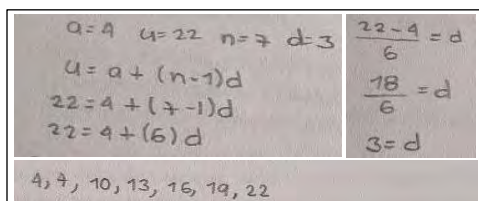 a=4 u=22 n=7 d=3
u=a+(n-1)d
22=4+(7-1)d
22=4+(6)d
22-4/6=d
18/6=d
3=d
4, 4, 10, 13, 16, 19, 22